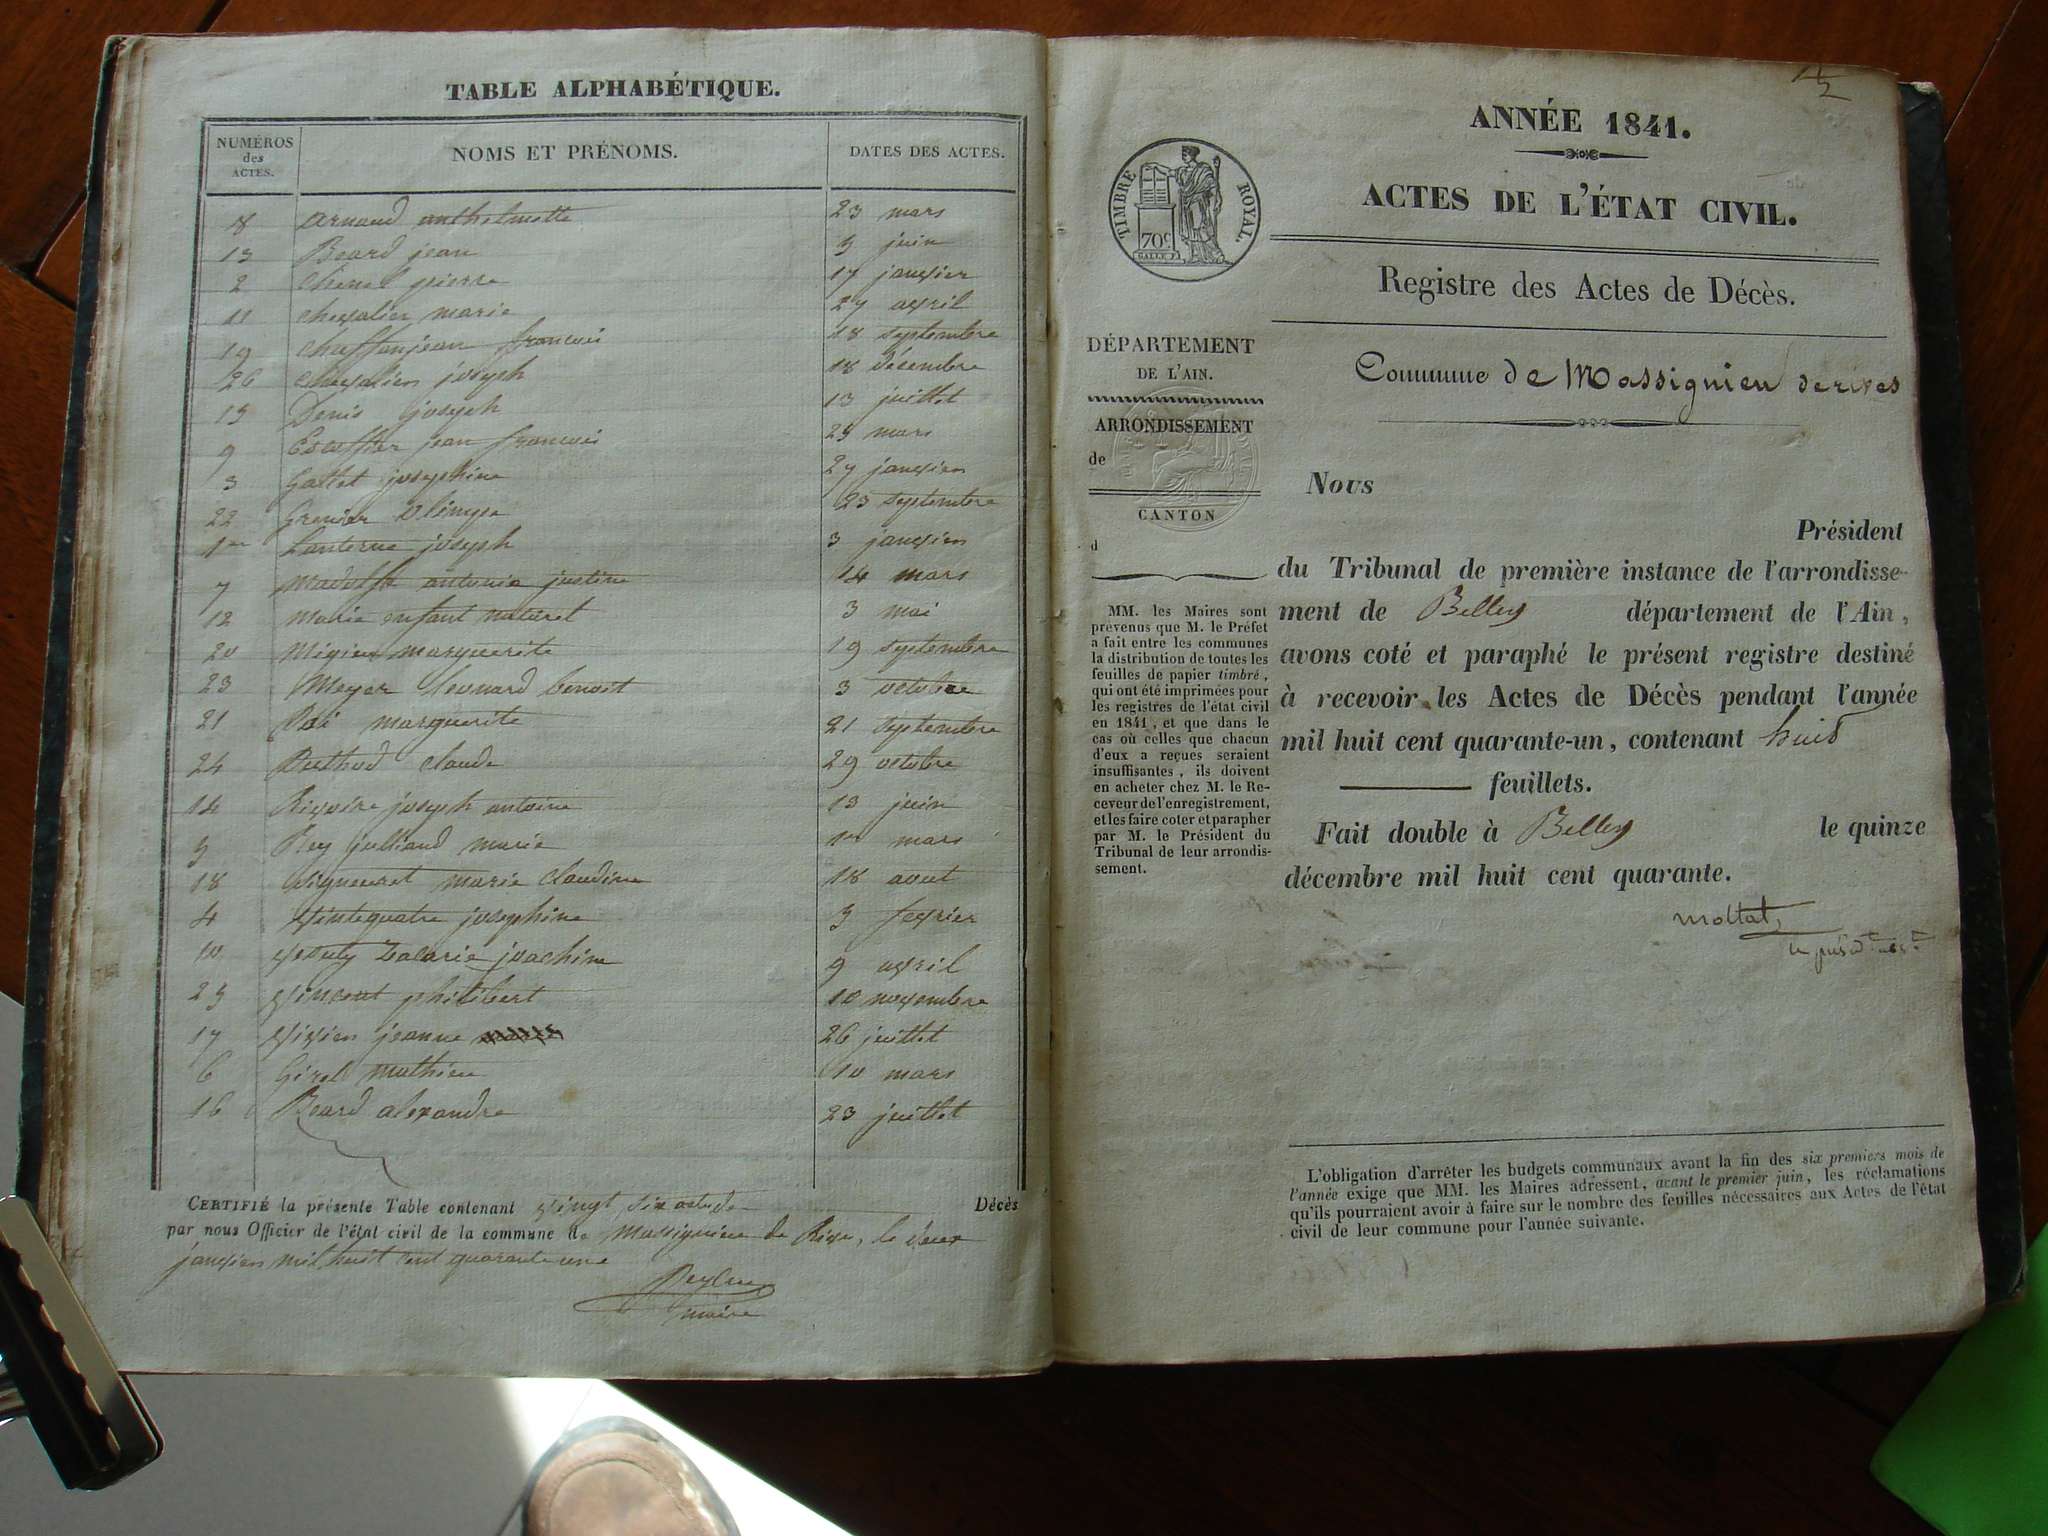 TABLE ALPHABÉTIQUE.
NUMÉROS des ACTES. NOMS ET PRÉNOMS. DATES DES ACTES.
8 Arnaud anthelmette 23 mars
13 Beard jean 9 juin
2 Chenel pierre 17 janvier
11 Chevalier marie 27 avril
19 Chaffanjean françois 18 septembre
26 Chevalier joseph 18 décembre
15 Denis joseph 13 juillet
9 Escoffier jean françois 29 mars
3 Gallet josephine 27 janvier
22 Grenier olimpe 23 septembre
1er Lanterne joseph 3 janvier
7 antonia justine 14 mars
12 Marie enfant naturel 3 mai
20 marguerite 19 septembre
23 Meyer léonard benoit 3 octobre
21 marguerite 21 septembre
24 Berthod claude 29 octobre
14 Rivoire joseph antoine 13 juin
5 Rey julliand marie 1er mars
18 Vigneuret marie claudine 18 aout
4 Vintequatre josephine 5 fevrier
10 zacarie joachim 9 avril
25 Vincent philibert 10 novembre
17 Vivien jeanne 26 juillet
6 Girel mathieu 10 mars
16 Beard alexandre 23 juillet
CERTIFIÉ la présente Table contenant vingt six actes de Décès
par nous Officier de l'état civil de la commune de Massignieu de Rive, le deux
janvier mil huit cent quarante une
maire
ANNÉE 1841.
ACTES DE L'ÉTAT CIVIL.
TIMBRE ROYAL.
70c
Registre des Actes de Décès.
DÉPARTEMENT
DE L'AIN.
ARRONDISSEMENT
de
CANTON
d
MM. les Maires sont
prévenus que M. le Préfet
a fait entre les communes
la distribution de toutes les
feuilles de papier timbré,
qui ont été imprimées pour
les registres de l'état civil
en 1841, et que dans le
cas où celles que chacun
d'eux a reçues seraient
insuffisantes, ils doivent
en acheter chez M. le Re-
ceveur de l'enregistrement,
et les faire coter et parapher
par M. le Président du
Tribunal de leur arrondis-
sement.
Commune de Massignieu derives
Nous
Président
du Tribunal de première instance de l'arrondisse-
ment de Belley département de l'Ain,
avons coté et paraphé le présent registre destiné
à recevoir les Actes de Décès pendant l'année
mil huit cent quarante-un, contenant huit
feuillets.
Fait double à Belley le quinze
décembre mil huit cent quarante.
mollat
L'obligation d'arrêter les budgets communaux avant la fin des six premiers mois de
l'année exige que MM. les Maires adressent, avant le premier juin, les réclamations
qu'ils pourraient avoir à faire sur le nombre des feuilles nécessaires aux Actes de l'état
civil de leur commune pour l'année suivante.